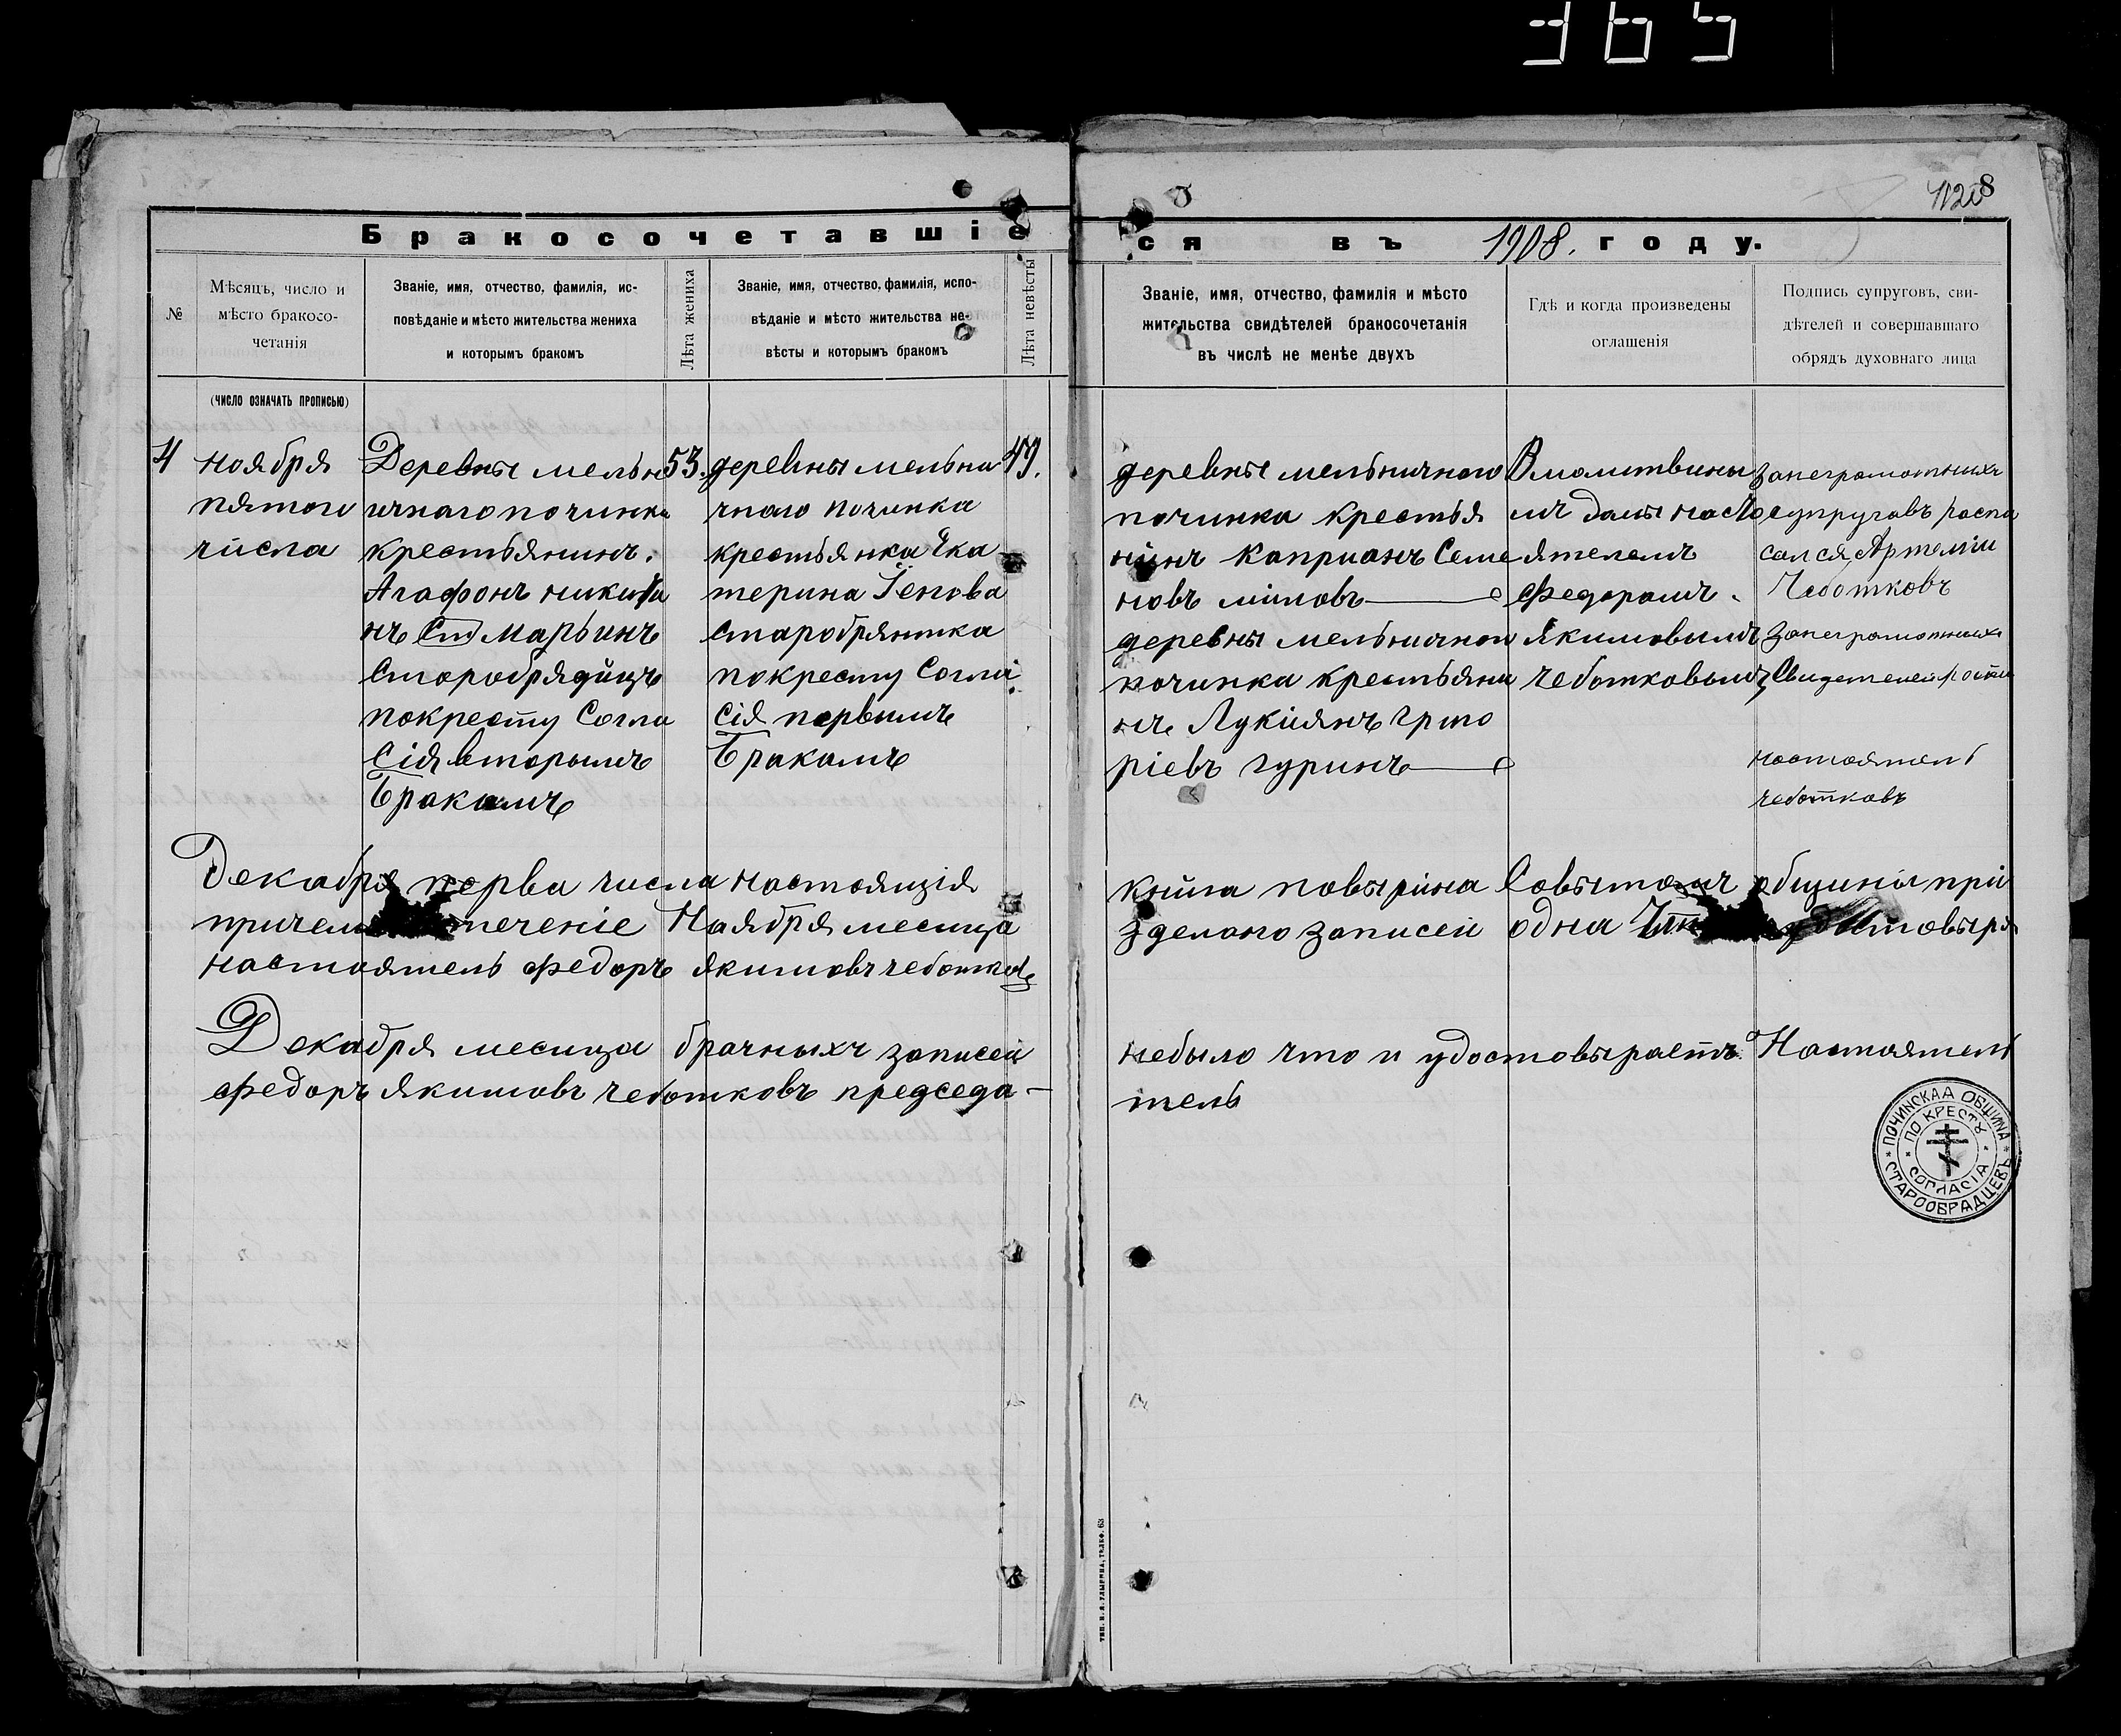 365
1128
Бракосочетавшіе
ся въ 1908. году.
№
Мѣсяцъ, число и
мѣсто бракосо-
четанія
Званіе, имя, отчество, фамилія, ис-
повѣданіе и мѣсто жительства жениха
и которымъ бракомъ
Лѣта жениха
Званіе, имя, отчество, фамилія, испо-
вѣданіе и мѣсто жительства не-
вѣсты и которымъ бракомъ
Лѣта невѣсты
Званіе, имя, отчество, фамилія и мѣсто
жительства свидѣтелей бракосочетанія
въ числѣ не менѣе двухъ
Гдѣ и когда произведены
оглашенія
Подпись супруговъ, сви-
дѣтелей и совершавшаго
обрядъ духовнаго лица
(число означать прописью)
4
ноября
пятого
числа
Деревны мельн
ичнаго починка
крестьянинъ.
Агафонъ никити
нъ Марьинъ
старобрядицъ
покресту Согла
Сія вторымъ
Бракамъ
53.
деревны мельни
чнаго починка
крестьянка Ека
терина
старобрянтка
покресту Согла
сія первымъ
Бракамъ
49.
деревны мельничнаго
починка крестья
нинъ Каприанъ Семе
новъ
деревны мельничнаго
починка крестьяни
нъ Лукіянъ григо
ріевъ гуринъ
Вмолитвины
мъ домы насто
ятелемъ
Федорамъ
Якимовымъ
чеботковымъ
Занеграмотныхъ
супруговъ распи
сался Артемій
Чеботковъ
Занеграмотныхъ
свидетелей
настоятель
чеботковъ
Декабря перва числа настоящія книга повырина Совытомъ общины при
чемъ течение Ноября месица зделано записей одна
настоятель Федоръ якимовъ чеботковъ
Декабря месица брачныхъ записей небыло что и удостовыраетъ Настоятель
Федоръ Якимовъ чеботковъ председа-
тель
ПОЧИНСКАА ОБЩИНА
СТАРООБРАДЦЕВЪ
ПО КРЕСТУ
СОГЛАСІА